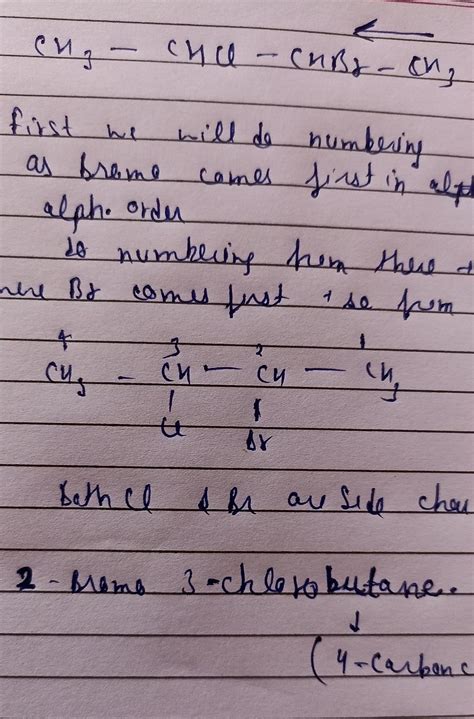 CH3 — CHCl — CHBr — CH3
first we will do numbering
as bromo comes first in alph
alph. order
so numbering from there
here Br comes first + so from
4 3 2 1
CH3 — CH — CH — CH3
Cl Br
both Cl & Br are side chai
2 - Bromo 3 - chlorobutane..
(4 - carbon c